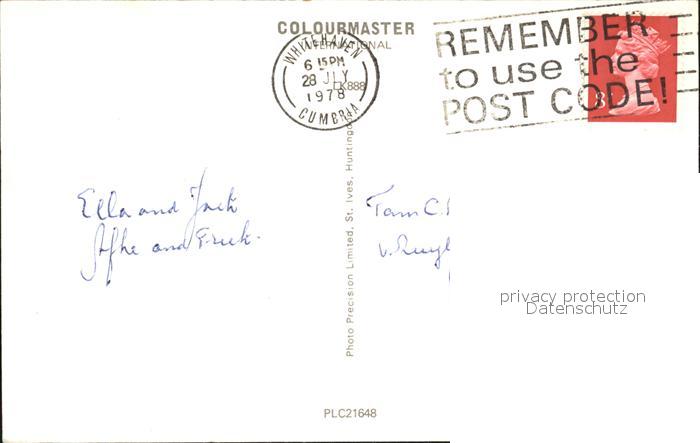 COLOURMASTER
INTERNATIONAL
WHITEHAVEN
6 15PM
28 JLY
1978
CUMBRIA
LK888
REMEMBER
to use the
POST CODE!
Ella and Jack
and
Tam C.
v. Ruyl
Photo Precision Limited, St. Ives, Huntingd
privacy protection
Datenschutz
PLC21648